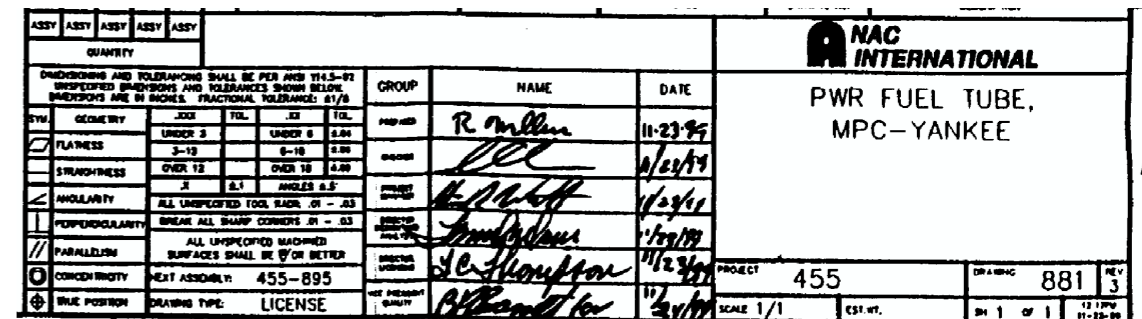 ASSY ASSY ASSY ASSY ASSY
QUANTITY
DIMENSIONING AND TOLERANCING SHALL BE PER ANSI Y14.5-82
UNSPECIFIED DIMENSIONS AND TOLERANCES SHOWN BELOW.
DIMENSIONS ARE IN INCHES. FRACTIONAL TOLERANCE: ±1/8
SYM. GEOMETRY .XXX TOL. .XX TOL.
UNDER 3 UNDER 6
FLATNESS 3-12 6-18
STRAIGHTNESS OVER 12 OVER 18
.X ±.1 ANGLES ±.5°
ANGULARITY ALL UNSPECIFIED TOOL RADII .01 - .03
PERPENDICULARITY BREAK ALL SHARP CORNERS .01 - .03
// PARALLELISM ALL UNSPECIFIED MACHINED
SURFACES SHALL BE OR BETTER
CONCENTRICITY NEXT ASSEMBLY: 455-895
TRUE POSITION DRAWING TYPE: LICENSE
GROUP NAME DATE
PREPARED R Miller 11-23-99
CHECKER 11/23/99
PROJECT
DIRECTOR 11/23/99
DIRECTOR
LICENSING Thompson 11/23/99
QUALITY
NAC
INTERNATIONAL
PWR FUEL TUBE,
MPC-YANKEE
PROJECT 455 DRAWING 881 REV 3
SCALE 1/1 EST.WT. SH 1 OF 1 12:17PM
11-23-99